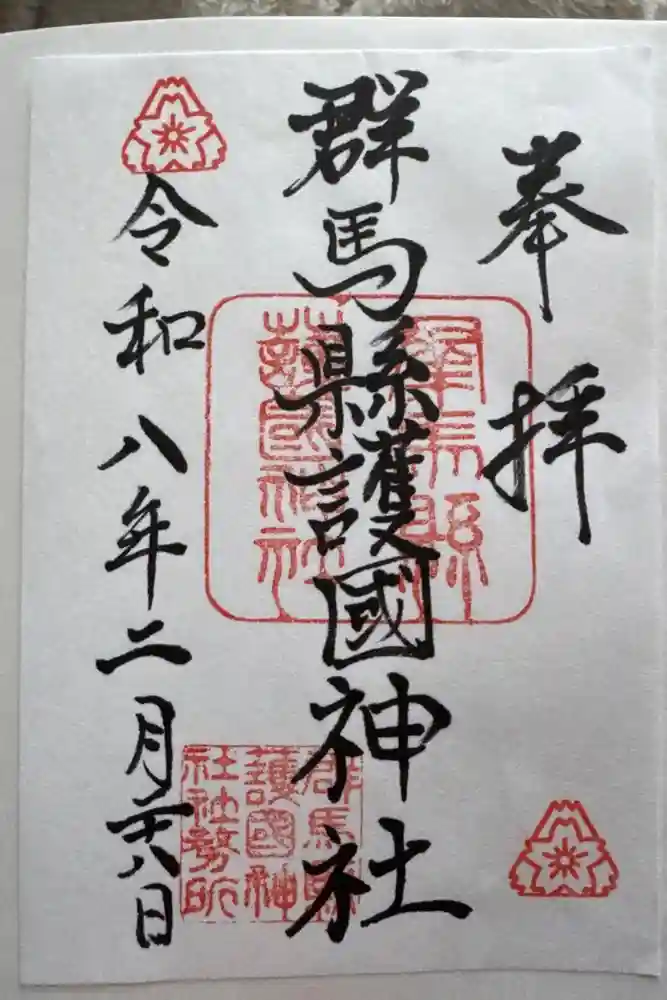 奉拝
群馬縣護國神社
令和八年二月廿八日
群馬縣
護國神社
群馬縣
護國神
社社務所